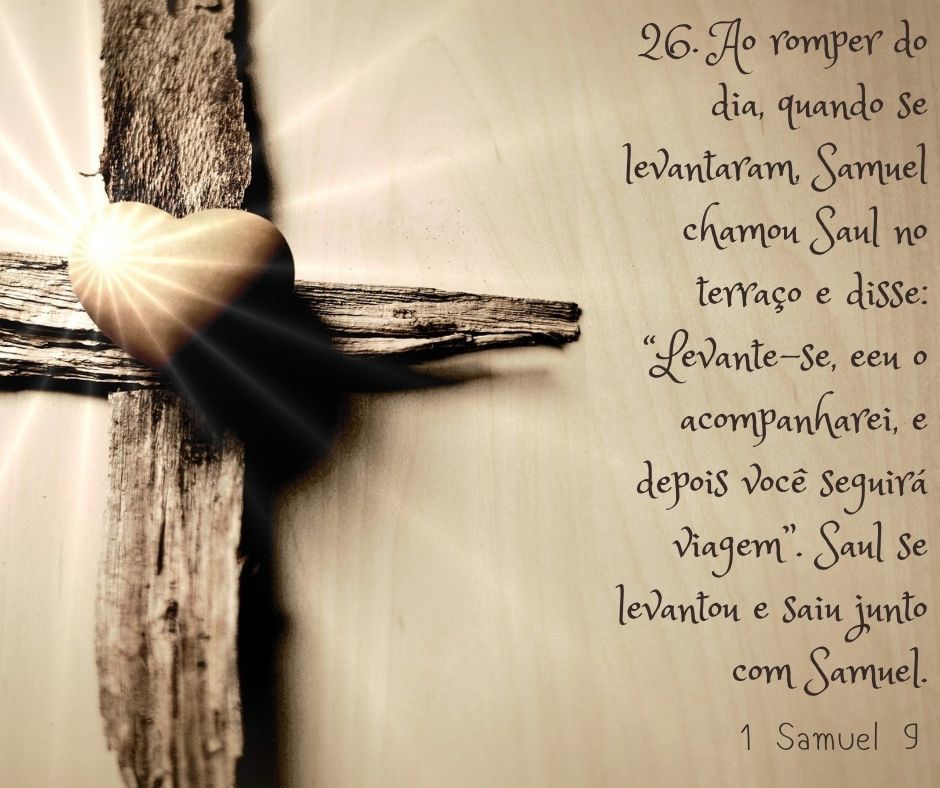 26. Ao romper do
dia, quando se
levantaram, Samuel
chamou Saul no
terraço e disse:
“Levante-se, eeu o
acompanharei, e
depois você seguirá
viagem”. Saul se
levantou e saiu junto
com Samuel.
1 Samuel 9